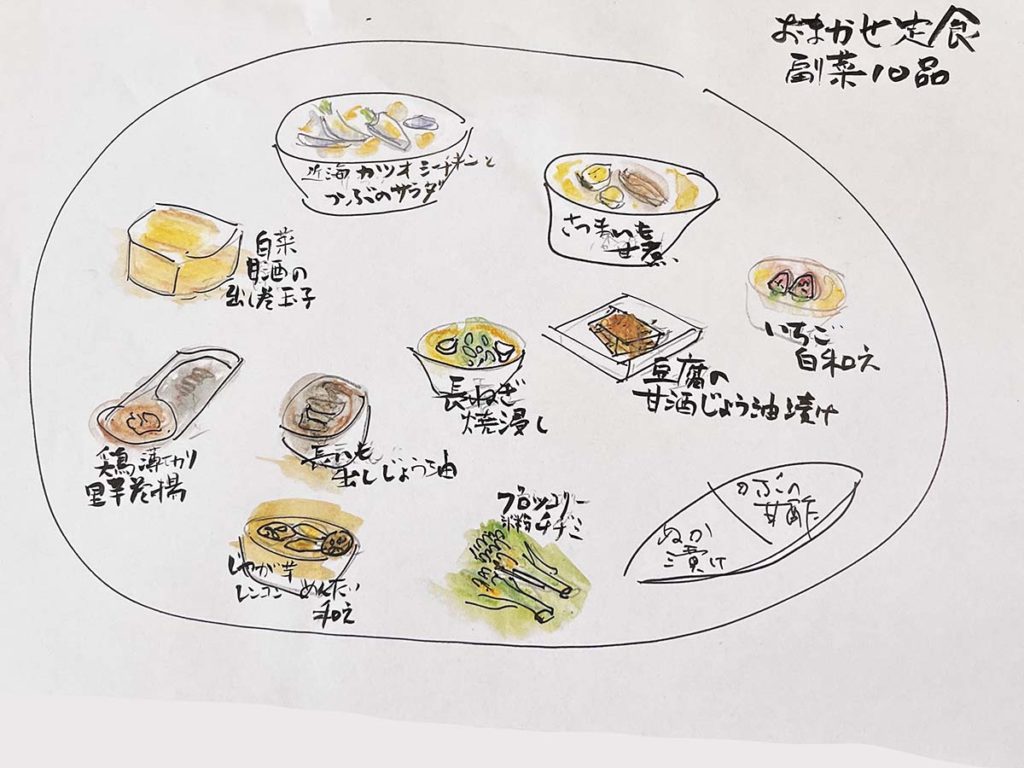 おまかせ定食
副菜10品
近海カツオシーチキンと
かぶのサラダ
さつまいも
甘煮
白菜
甘酒の
出し巻玉子
いちご
白和え
長ねぎ
焼浸し
豆腐の
甘酒じょう油漬け
鶏薄切り
里芋巻揚
長いも
出しじょう油
ブロッコリー
米粉チヂミ
かぶの
甘酢
ぬか
漬け
じゃが芋
レンコン めんたい
和え